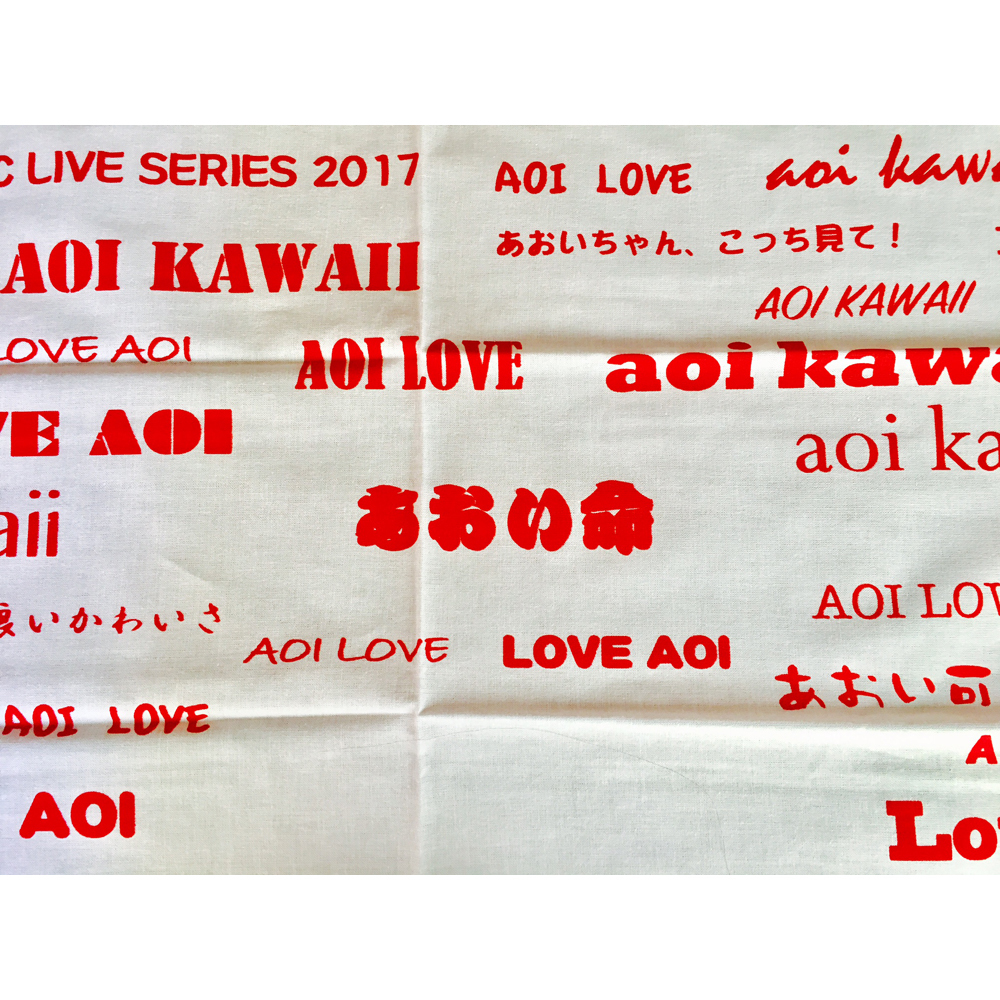 C LIVE SERIES 2017
AOI LOVE
aoi kawa
AOI KAWAII
あおいちゃん、こっち見て！
AOI KAWAII
LOVE AOI
AOI LOVE
aoi kawa
VE AOI
aoi ka
aii
あおい命
いかわいさ
AOI LOVE
LOVE AOI
AOI LOV
あおい可
AOI LOVE
A
AOI
Lo